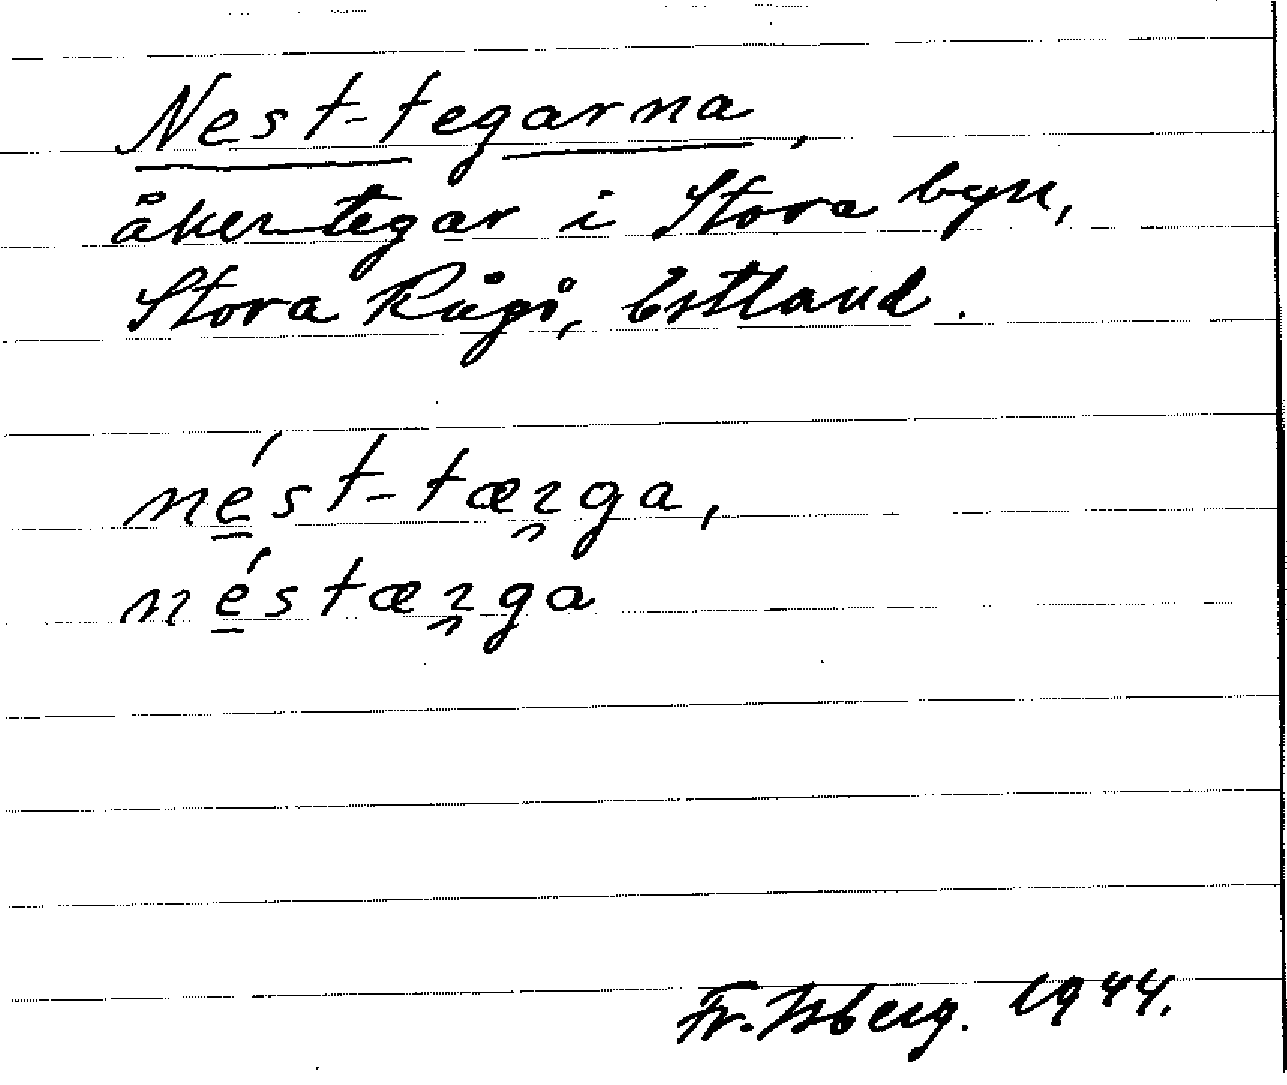 Nest-tegarna,
åkertegar i Stora byn,
Stora Rågö, Estland.
né̲st-tæɿga,
né̲stæɿga
Fr. Isberg. 1944.